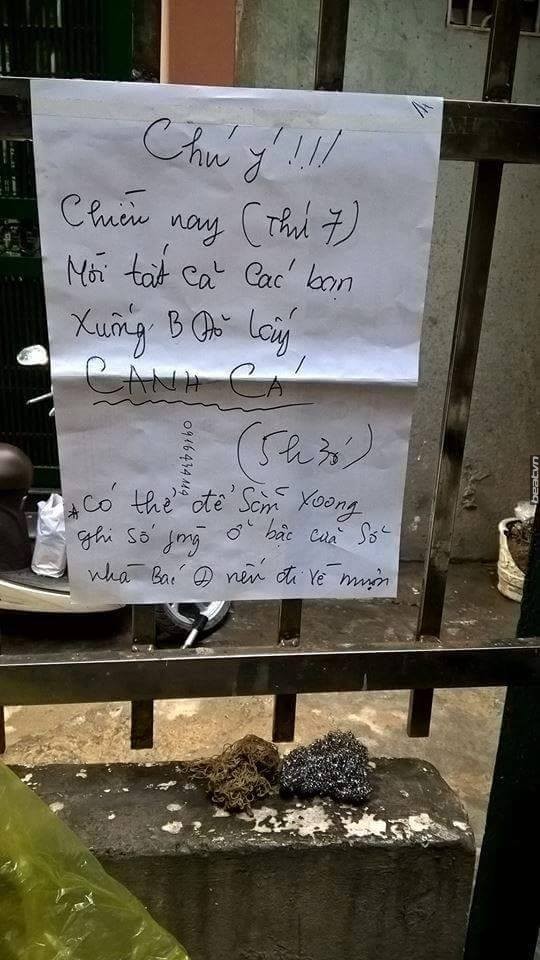 Chú ý!!!!
Chiều nay (Thứ 7)
Mời tất cả các bạn
xuống B lấy
CANH CÁ
(5h 30)
* Có thể để sẵn xoong
ghi số ở bậc cửa sổ
nhà Bác nếu đi về muộn
beatvn